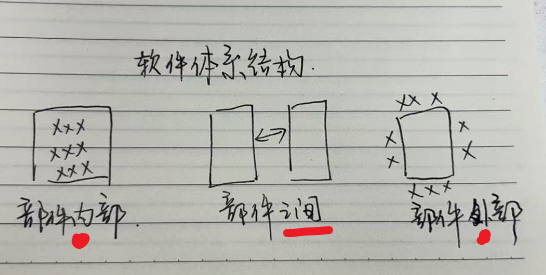 软件体系结构.
部件内部
部件之间
部件外部